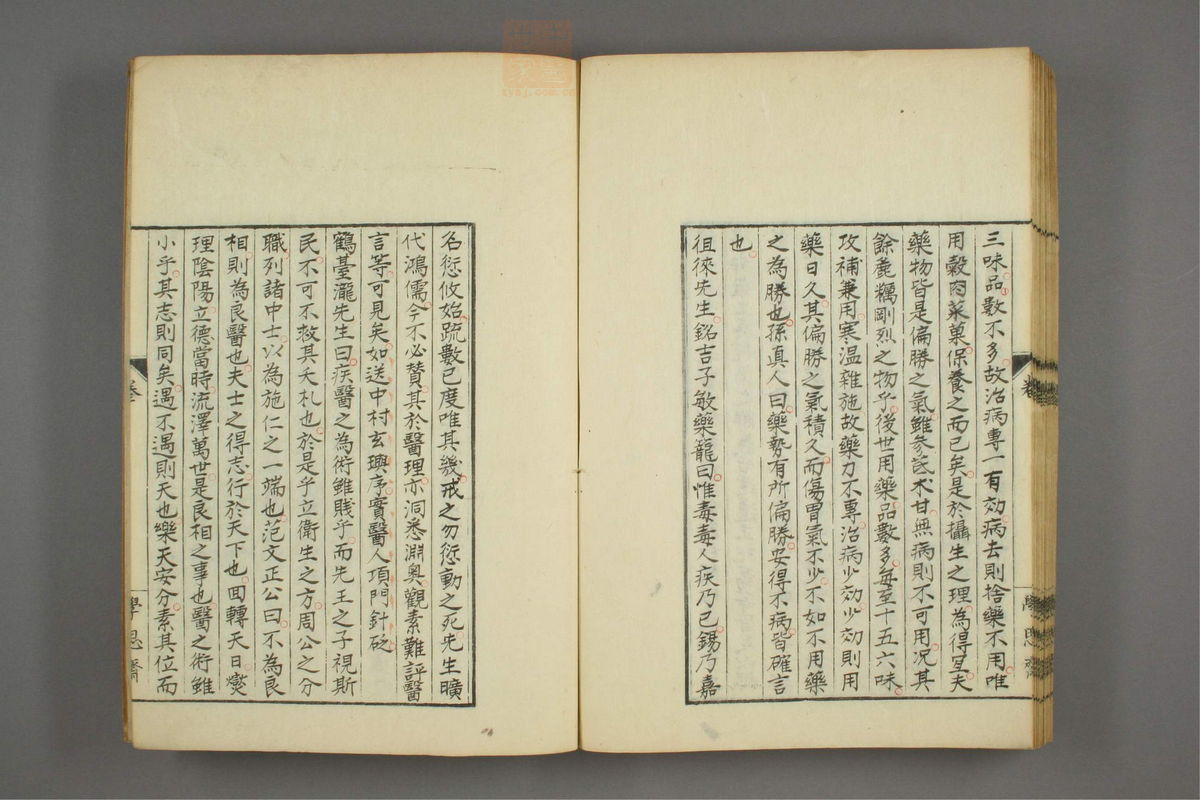 三味品數不多故治病專一有効病去則捨藥不用唯
用穀肉菓菜保養之而已矣是於攝生之理為得宜夫
藥物皆是偏勝之氣雖參芪朮甘無病則不可用況其
餘麁糲剛烈之物乎後世用藥品數多每至十五六味
攻補兼用寒温雜施故藥力不專治病少効少効則用
藥日久其偏勝之氣積久而傷胃氣不少不如不用藥
之為勝也孫真人曰藥勢有所偏勝安得不病皆確言
也
徂徠先生銘吉子敏藥籠曰惟毒毒人疾乃已錫乃嘉
名愆攸始疏數已度唯其幾戒之勿愆動之死先生曠
代鴻儒今不必賛其於醫理亦洞悉淵奥觀素難評醫
言等可見矣如送中村玄輿序實醫人項門針砭
鶴臺瀧先生曰疾醫之為術雖賤乎而先王之子視斯
民不可不救其夭札也於是乎立衛生之方周公之分
職列諸中士以為施仁之一端也范文正公曰不為良
相則為良醫也夫士之得志行於天下也回轉天日燮
理陰陽立德當時流澤萬世是良相之事也醫之術雖
小乎其志則同矣遇不遇則天也樂天安分素其位而
學思齋